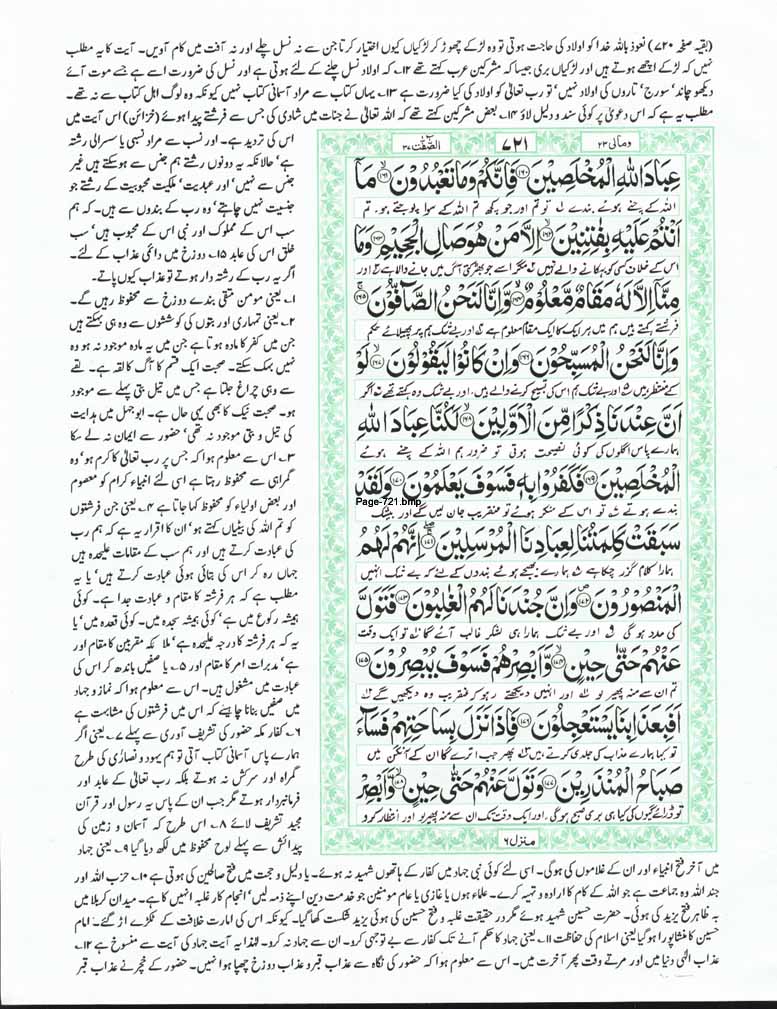 (بقیہ صفحہ ۷۲۰) نعوذ باللہ خدا کو اولاد کی حاجت ہوتی تو وہ لڑکے چھوڑ کر لڑکیاں کیوں اختیار کرتا جن سے نہ نسل چلے اور نہ آفت میں کام آویں۔ آیت کا یہ مطلب
نہیں کہ لڑکے اچھے ہوتے ہیں اور لڑکیاں بری جیسا کہ مشرکین عرب کہتے تھے ۱۲۔ کہ اولاد نسل چلنے کے لئے ہوتی ہے اور نسل کی ضرورت اسے ہے جسے موت آئے
دیکھو چاند' سورج' تاروں کی اولاد نہیں' تو رب تعالیٰ کو اولاد کی کیا ضرورت ہے ۱۳۔ یہاں کتاب سے مراد آسمانی کتاب نہیں کیونکہ وہ لوگ اہل کتاب سے نہ تھے۔
مطلب یہ ہے کہ اس دعویٰ پر کوئی سند و دلیل لاؤ ۱۴۔ بعض مشرکین کہتے تھے کہ اللہ تعالیٰ نے جنات میں شادی کی جس سے فرشتے پیدا ہوئے (خزائن) اس آیت میں
اس کی تردید ہے۔ اور نسب سے مراد نسبی یا سسرالی رشتہ
ہے' حالانکہ یہ دونوں رشتے ہم جنس سے ہو سکتے ہیں غیر
جنس سے نہیں' اور عبدیت' ملکیت محبوبیت کے رشتے جو
جنسیت نہیں چاہتے' وہ رب کے بندوں سے ہیں۔ کہ ہم
سب اس کے مملوک اور نبی اس کے محبوب ہیں' سب
خلق اس کی عابد ۱۵۔ دوزخ میں دائمی عذاب کے لئے۔
اگر یہ رب کے رشتہ دار ہوتے تو عذاب کیوں پاتے۔
۱۔ یعنی مومن متقی بندے دوزخ سے محفوظ رہیں گے۔
۲۔ یعنی تمہاری اور بتوں کی کوششوں سے وہ ہی بہکتے ہیں
جن میں کفر کا مادہ ہوتا ہے جن میں یہ مادہ موجود نہ ہو وہ
نہیں بہک سکتے۔ صحبت ایک قسم کا آگ کا لقہ ہے۔ لقے
سے وہی چراغ جلتا ہے جس میں تیل بتی پہلے سے موجود
ہو۔ صحبت نیک کا بھی یہی حال ہے۔ ابو جہل میں ہدایت
کی تیل و بتی موجود نہ تھی' حضور سے ایمان نہ لے سکا
۳۔ اس سے معلوم ہوا کہ جس پر رب تعالیٰ کا کرم ہو' وہ
گمراہی سے محفوظ رہتا ہے اسی لئے انبیاء کرام کو معصوم
اور بعض اولیاء کو محفوظ کہا جاتا ہے ۴۔ یعنی جن فرشتوں
کو تم اللہ کی بیٹیاں کہتے ہو' ان کا اقرار یہ ہے کہ ہم رب
کی عبادت کرتے ہیں اور ہم سب کے مقامات علیحدہ ہیں
جہاں رہ کر اس کی بتائی ہوئی عبادت کرتے ہیں' یا یہ
مطلب ہے کہ ہر فرشتہ کا مقام و عبادت جدا ہے۔ کوئی
ہمیشہ رکوع میں ہے' کوئی ہمیشہ سجدہ میں۔ کوئی قعدہ میں' یا
یہ کہ ہر فرشتہ کا درجہ علیحدہ ہے' ملا ئکہ مقربین کا مقام اور
ہے' مدبرات امر کا مقام اور ۵۔ یا صفیں باندھ کر اس کی
عبادت میں مشغول ہیں۔ اس سے معلوم ہوا کہ نماز و جہاد
میں صفیں بنانا چاہئے کہ اس میں فرشتوں کی مشابہت ہے
۶۔ کفار مکہ حضور کی تشریف آوری سے پہلے ۷۔ یعنی اگر
ہمارے پاس آسمانی کتاب آتی تو ہم یہود و نصاریٰ کی طرح
گمراہ اور سرکش نہ ہوتے بلکہ رب تعالیٰ کے عابد اور
فرمانبردار ہوتے مگر جب ان کے پاس یہ رسول اور قرآن
مجید تشریف لائے ۸۔ اس طرح کہ آسمان و زمین کی
پیدائش سے پہلے لوح محفوظ میں لکھ دیا گیا ۹۔ یعنی جہاد
ومالی ۲۳
۷۲۱
الصّٰفّٰت ۳۷
عِبَادَ اللّٰهِ الْمُخْلَصِيْنَ ﴿۱۶۰﴾ فَاِنَّكُمْ وَمَا تَعْبُدُوْنَ ﴿۱۶۱﴾ مَآ
اللہ کے چنے ہوئے بندے لہ تو تم اور جو کچھ تم اللہ کے سوا پوجتے ہو تم
اَنْتُمْ عَلَيْهِ بِفٰتِنِيْنَ ﴿۱۶۲﴾ اِلَّا مَنْ هُوَ صَالِ الْجَحِيْمِ ﴿۱۶۳﴾ وَمَا
اس کے خلاف کسی کو بہکانے والے نہیں مگر اسے جو بھڑکتی آگ میں جانے والا ہے اور
مِنَّآ اِلَّا لَهٗ مَقَامٌ مَّعْلُوْمٌ ﴿۱۶۴﴾ وَّاِنَّا لَنَحْنُ الصَّآفُّوْنَ ﴿۱۶۵﴾
فرشتے کہتے ہیں ہم میں ہر ایک کا ایک مقام معلوم ہے اور بے شک ہم پر پھیلائے حکم
وَاِنَّا لَنَحْنُ الْمُسَبِّحُوْنَ ﴿۱۶۶﴾ وَاِنْ كَانُوْا لَيَقُوْلُوْنَ ﴿۱۶۷﴾ لَوْ
کے منتظر ہیں اور بے شک ہم اس کی تسبیح کرنے والے ہیں، اور بے شک وہ کہتے تھے اگر
اَنَّ عِنْدَنَا ذِكْرًا مِّنَ الْاَوَّلِيْنَ ﴿۱۶۸﴾ لَكُنَّا عِبَادَ اللّٰهِ
ہمارے پاس اگلوں کی کوئی نصیحت ہوتی تو ضرور ہم اللہ کے چنے ہوئے
الْمُخْلَصِيْنَ ﴿۱۶۹﴾ فَكَفَرُوْا بِهٖ فَسَوْفَ يَعْلَمُوْنَ ﴿۱۷۰﴾ وَلَقَدْ
Page-721.bmp
بندے ہوتے تو اس کے منکر ہوئے تو عنقریب جان لیں گے اور بیشک
سَبَقَتْ كَلِمَتُنَا لِعِبَادِنَا الْمُرْسَلِيْنَ ﴿۱۷۱﴾ اِنَّهُمْ لَهُمُ
ہمارا کلام گزر چکا ہے ہمارے بھیجے ہوئے بندوں کے لئے کہ بے شک انہیں
الْمَنْصُوْرُوْنَ ﴿۱۷۲﴾ وَاِنَّ جُنْدَنَا لَهُمُ الْغٰلِبُوْنَ ﴿۱۷۳﴾ فَتَوَلَّ
کی مدد ہو گی اور بے شک ہمارا ہی لشکر غالب آئے گا تو ایک وقت
عَنْهُمْ حَتّٰى حِيْنٍ ﴿۱۷۴﴾ وَّاَبْصِرْهُمْ فَسَوْفَ يُبْصِرُوْنَ ﴿۱۷۵﴾
تم ان سے منہ پھیر لو اور انہیں دیکھتے رہو کہ عنقریب وہ دیکھیں گے
اَفَبِعَذَابِنَا يَسْتَعْجِلُوْنَ ﴿۱۷۶﴾ فَاِذَا نَزَلَ بِسَاحَتِهِمْ فَسَآءَ
تو کیا ہمارے عذاب کی جلدی کرتے ہیں پھر جب اترے گا ان کے آنگن میں
صَبَاحُ الْمُنْذَرِيْنَ ﴿۱۷۷﴾ وَتَوَلَّ عَنْهُمْ حَتّٰى حِيْنٍ ﴿۱۷۸﴾ وَّاَبْصِرْ
تو ڈرائے گیوں کی کیا ہی بری صبح ہو گی، اور ایک وقت تک ان سے منہ پھیر لو اور انتظار کرو
منزل ۶
میں آخر فتح انبیاء اور ان کے غلاموں کی ہو گی۔ اسی لئے کوئی نبی جہاد میں کفار کے ہاتھوں شہید نہ ہوئے۔ یا دلیل و حجت میں فتح صالحین کی ہوتی ہے ۱۰۔ حزب اللہ اور
جند اللہ وہ جماعت ہے جو اللہ کے کام کا ارادہ و تہیہ کرے۔ علماء ہوں یا غازی یا عام مومنین جو خدمت دین اپنے ذمہ لیں' انجام کار غلبہ انہیں کا ہے۔ میدان کربلا میں
بہ ظاہر فتح یزید کی ہوئی۔ حضرت حسین شہید ہوئے مگر در حقیقت غلبہ و فتح حسین کی ہوئی یزید شکست کھا گیا۔ کیونکہ اس کی امارت خلافت کے ٹکڑے اڑ گئے۔ امام
حسین کا منشا پورا ہو گیا یعنی اسلام کی حفاظت ۱۱۔ یعنی جہاد کا حکم آنے تک کفار سے بے توجہی کرو۔ ان سے جہاد نہ کرو۔ لہٰذا یہ آیت جہاد کی آیت سے منسوخ ہے ۱۲۔
عذاب الٰہی دنیا میں اور مرتے وقت پھر آخرت میں۔ اس سے معلوم ہوا کہ حضور کی نگاہ سے عذاب قبر و عذاب دوزخ چھپا ہوا نہیں۔ حضور کے خچر نے عذاب قبر